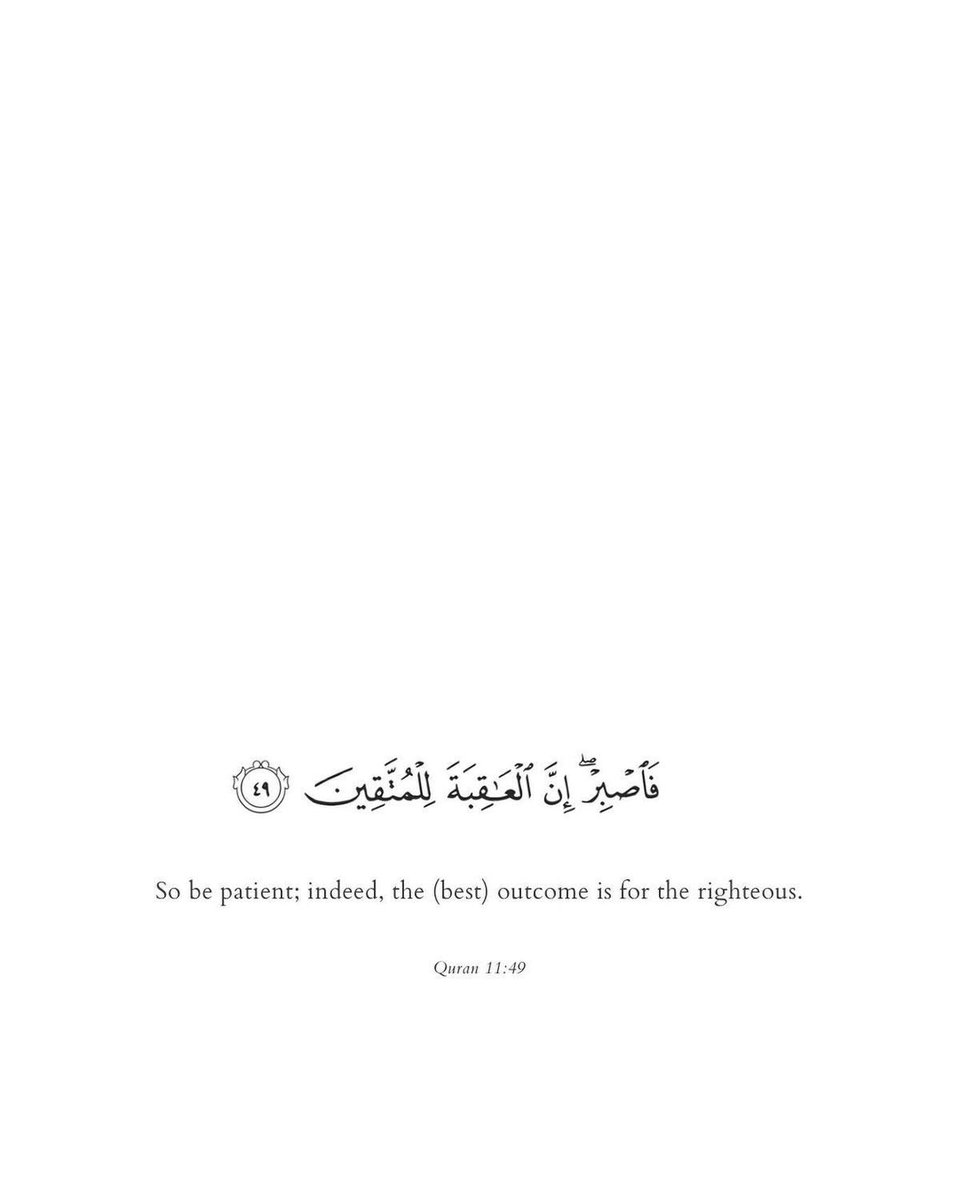 فَٱصۡبِرۡۖ إِنَّ ٱلۡعَٰقِبَةَ لِلۡمُتَّقِينَ ٤٩
So be patient; indeed, the (best) outcome is for the righteous.
Quran 11:49